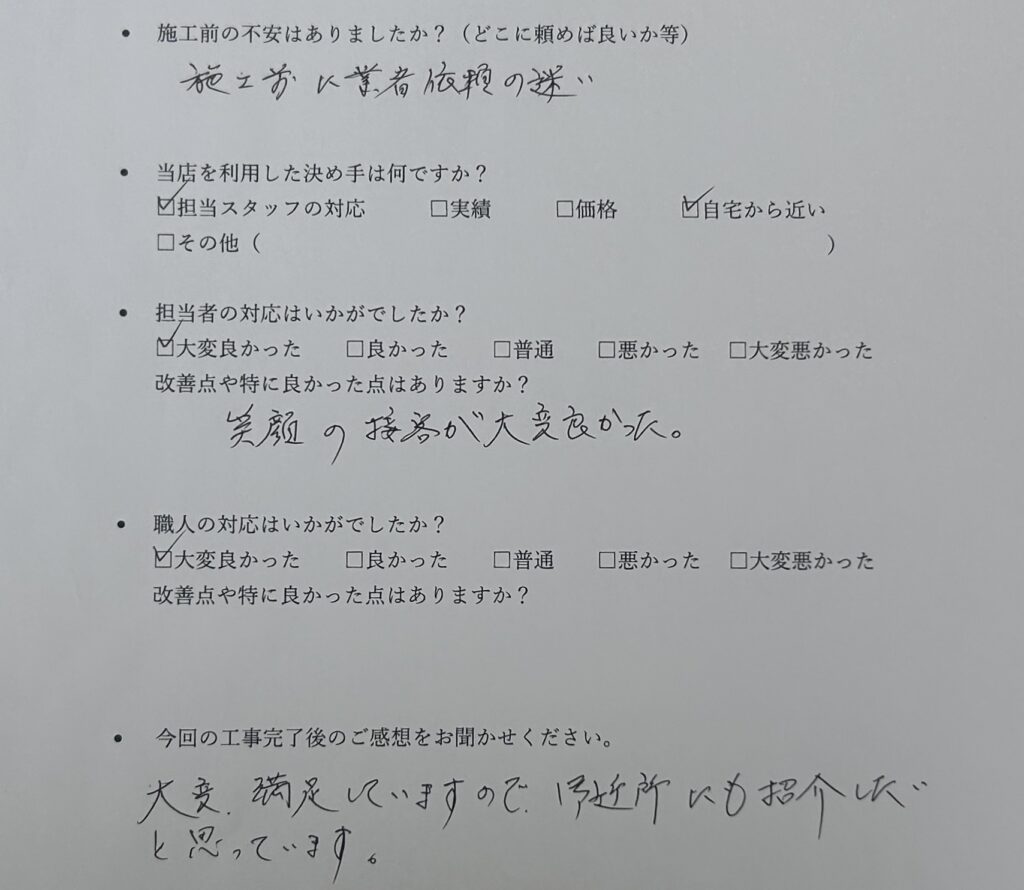 • 施工前の不安はありましたか？（どこに頼めば良いか等）
施工前に業者依頼の迷い
• 当店を利用した決め手は何ですか？
☑担当スタッフの対応 □実績 □価格 ☑自宅から近い
□その他（ ）
• 担当者の対応はいかがでしたか？
☑大変良かった □良かった □普通 □悪かった □大変悪かった
改善点や特に良かった点はありますか？
笑顔の接客が大変良かった。
• 職人の対応はいかがでしたか？
☑大変良かった □良かった □普通 □悪かった □大変悪かった
改善点や特に良かった点はありますか？
• 今回の工事完了後のご感想をお聞かせください。
大変、満足していますので、御近所にも紹介したい
と思っています。